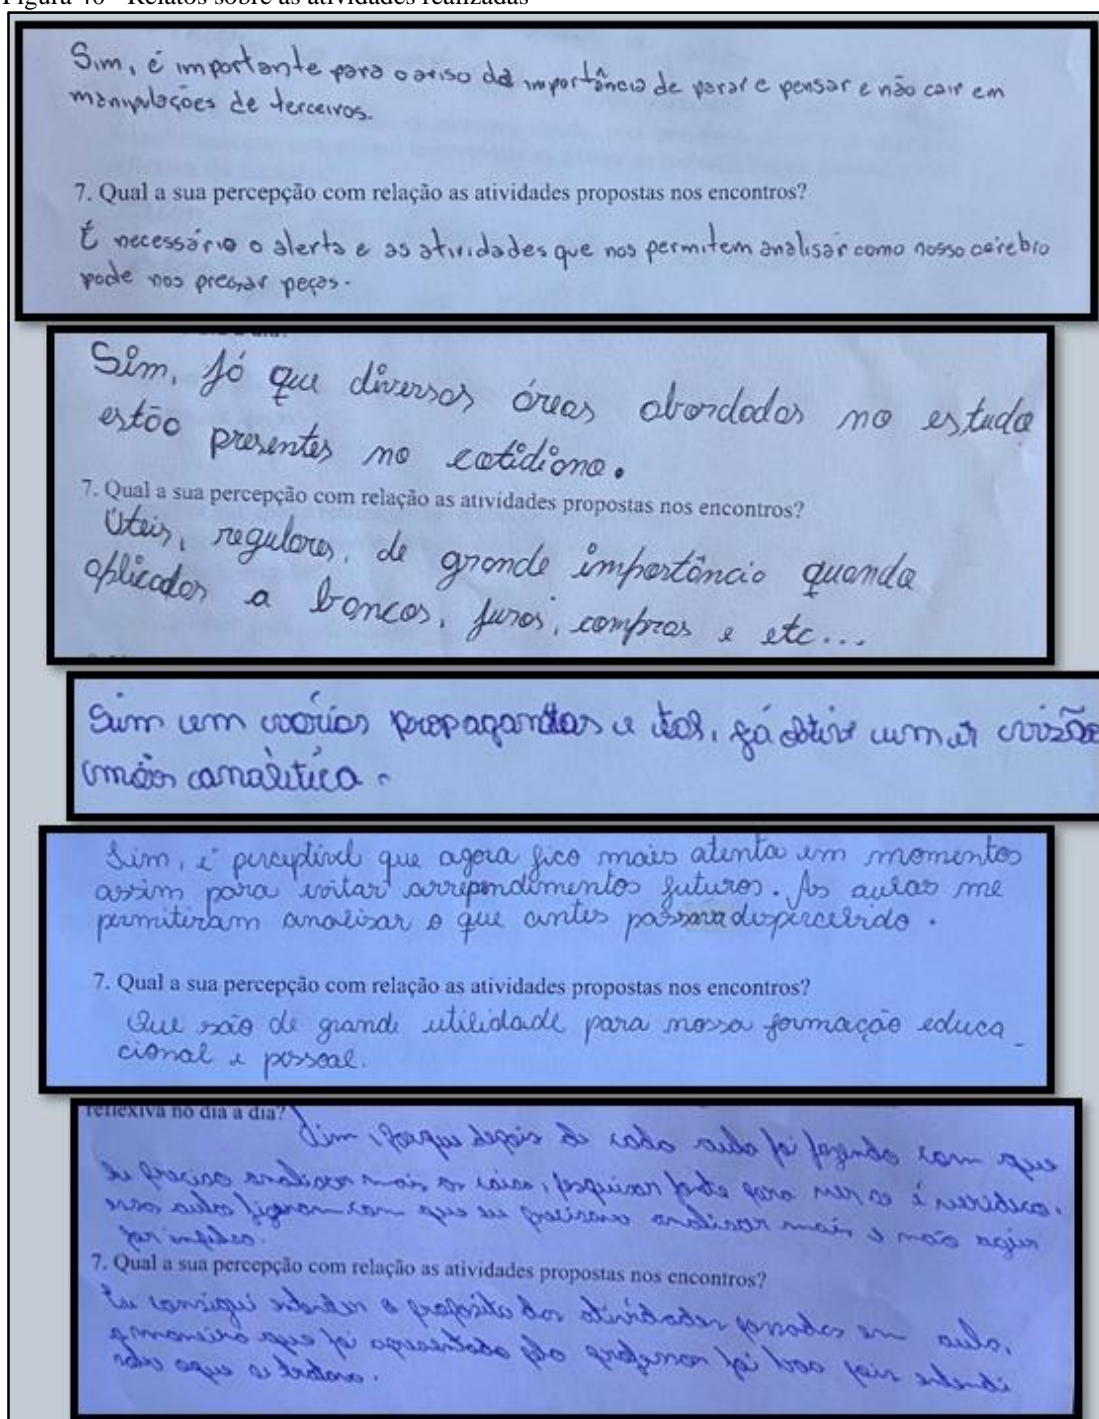 Figura 46 - Relatos sobre as atividades realizadas
Sim, é importante para o aviso da importância de parar e pensar e não cair em
manipulações de terceiros.
7. Qual a sua percepção com relação as atividades propostas nos encontros?
É necessário o alerta e as atividades que nos permitem analisar como nosso cérebro
pode nos pregar peças.
Sim, já que diversas áreas abordadas no estudo
estão presentes no cotidiano.
7. Qual a sua percepção com relação as atividades propostas nos encontros?
Úteis, regulares, de grande importância quando
aplicadas a bancos, juros, compras e etc...
Sim em varias propagandas e tals, já obtive uma visão
mais analitica.
Sim, é perceptivel que agora fico mais atenta em momentos
assim para evitar arrependimentos futuros. As aulas me
permitiram analisar o que antes passava despercebido.
7. Qual a sua percepção com relação as atividades propostas nos encontros?
Que são de grande utilidade para nossa formação educa_
cional e pessoal.
reflexiva no dia a dia?
Sim, porque depois de cada aula foi fazendo com que
eu preciso analisar mais as coisas, pesquisar fonte para ver se é veridico.
essas aulas fizeram com que eu precisava analisar mais e não agir
por impulso.
7. Qual a sua percepção com relação as atividades propostas nos encontros?
Eu consigui entender o proposito das atividades passadas em aula,
a maneira que foi apresentado pelo professor foi boa pois entendi
sobre oque se tratava.